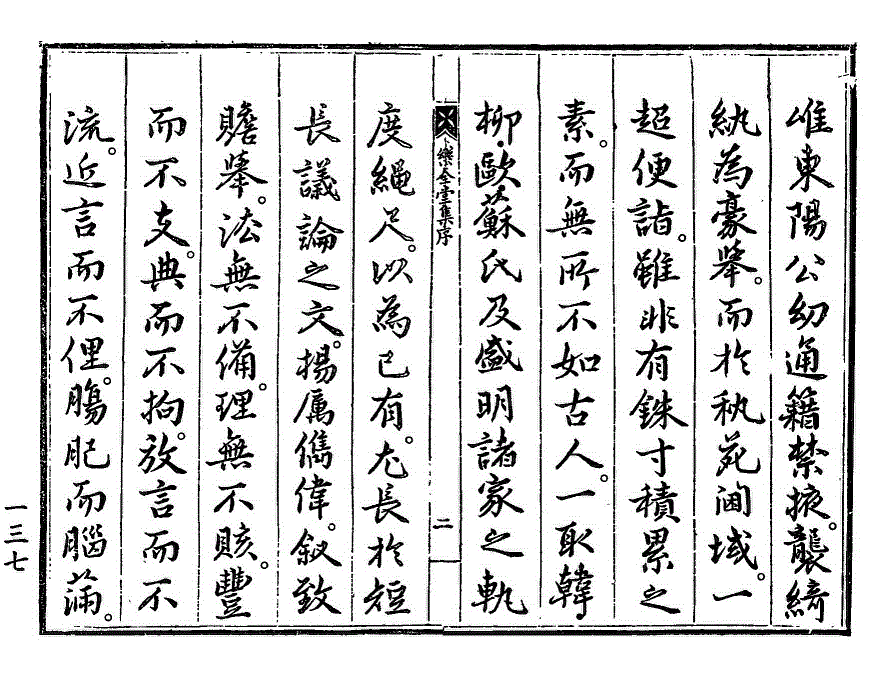 唯東陽公幼通籍禁掖。襲綺
紈為豪擧。而於秇苑閫域。一
超便詣。雖非有銖寸積累之
素。而無所不如古人。一取韓
柳，歐，蘇氏及盛明諸家之軌
樂全堂集序
二
度繩尺。以為己有。尤長於短
長議論之文。揚厲儁偉。敍致
贍擧。法無不備。理無不賅。豐
而不支。典而不拘。放言而不
流。近言而不俚。膓肥而腦滿。
一三七